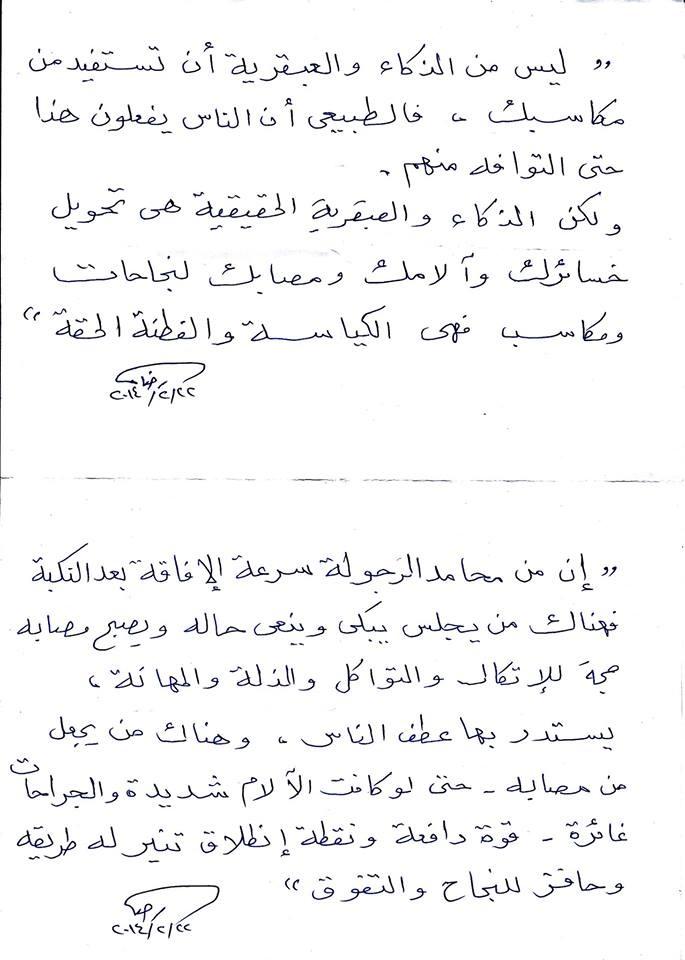 „ ليس من الذكاء والعبقرية أن تستفيد من
مكاسبك ، فالطبيعى أن الناس يفعلون هذا
حتى التوافه منهم .
ولكن الذكاء والعبقرية الحقيقية هى تحويل
خسائرك وآلامك ومصابك لنجاحات
ومكاسب فهى الكياسة والفطنة الحقة “
٢٠١٤/٢/٢٢
„ إن من محامد الرجولة سرعة الإفاقة بعد النكبة
فهناك من يجلس يبكى وينعى حاله ويصبح مصابه
حجة للإتكال والتواكل والذلة والمهانة ،
يستدر بها عطف الناس ، وهناك من يجعل
من مصابه - حتى لو كانت الآلام شديدة والجراحات
غائرة - قوة دافعة ونقطة إنطلاق تنير له طريقه
وحافز للنجاح والتفوق “
٢٠١٤/٢/٢٢